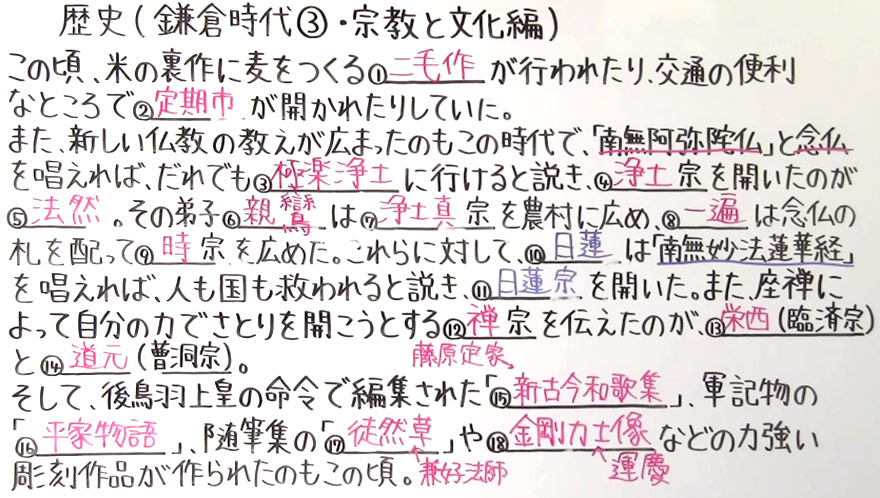 歴史(鎌倉時代③・宗教と文化編)
この頃、米の裏作に麦をつくる①二毛作が行われたり、交通の便利
なところで②定期市が開かれたりしていた。
また、新しい仏教の教えが広まったのもこの時代で、「南無阿弥陀仏」と念仏
を唱えれば、だれでも③極楽浄土に行けると説き、④浄土宗を開いたのが
⑤法然。その弟子⑥親鸞は⑦浄土真宗を農村に広め、⑧一遍は念仏の
札を配って⑨時宗を広めた。これらに対して、⑩日蓮は「南無妙法蓮華経」
を唱えれば、人も国も救われると説き、⑪日蓮宗を開いた。また、座禅に
よって自分の力でさとりを開こうとする⑫禅宗を伝えたのが、⑬栄西(臨済宗)
と⑭道元(曹洞宗)。
藤原定家
そして、後鳥羽上皇の命令で編集された「⑮新古今和歌集」、軍記物の
「⑯平家物語」、随筆集の「⑰徒然草」や⑱金剛力士像などの力強い
彫刻作品が作られたのもこの頃。兼好法師 運慶